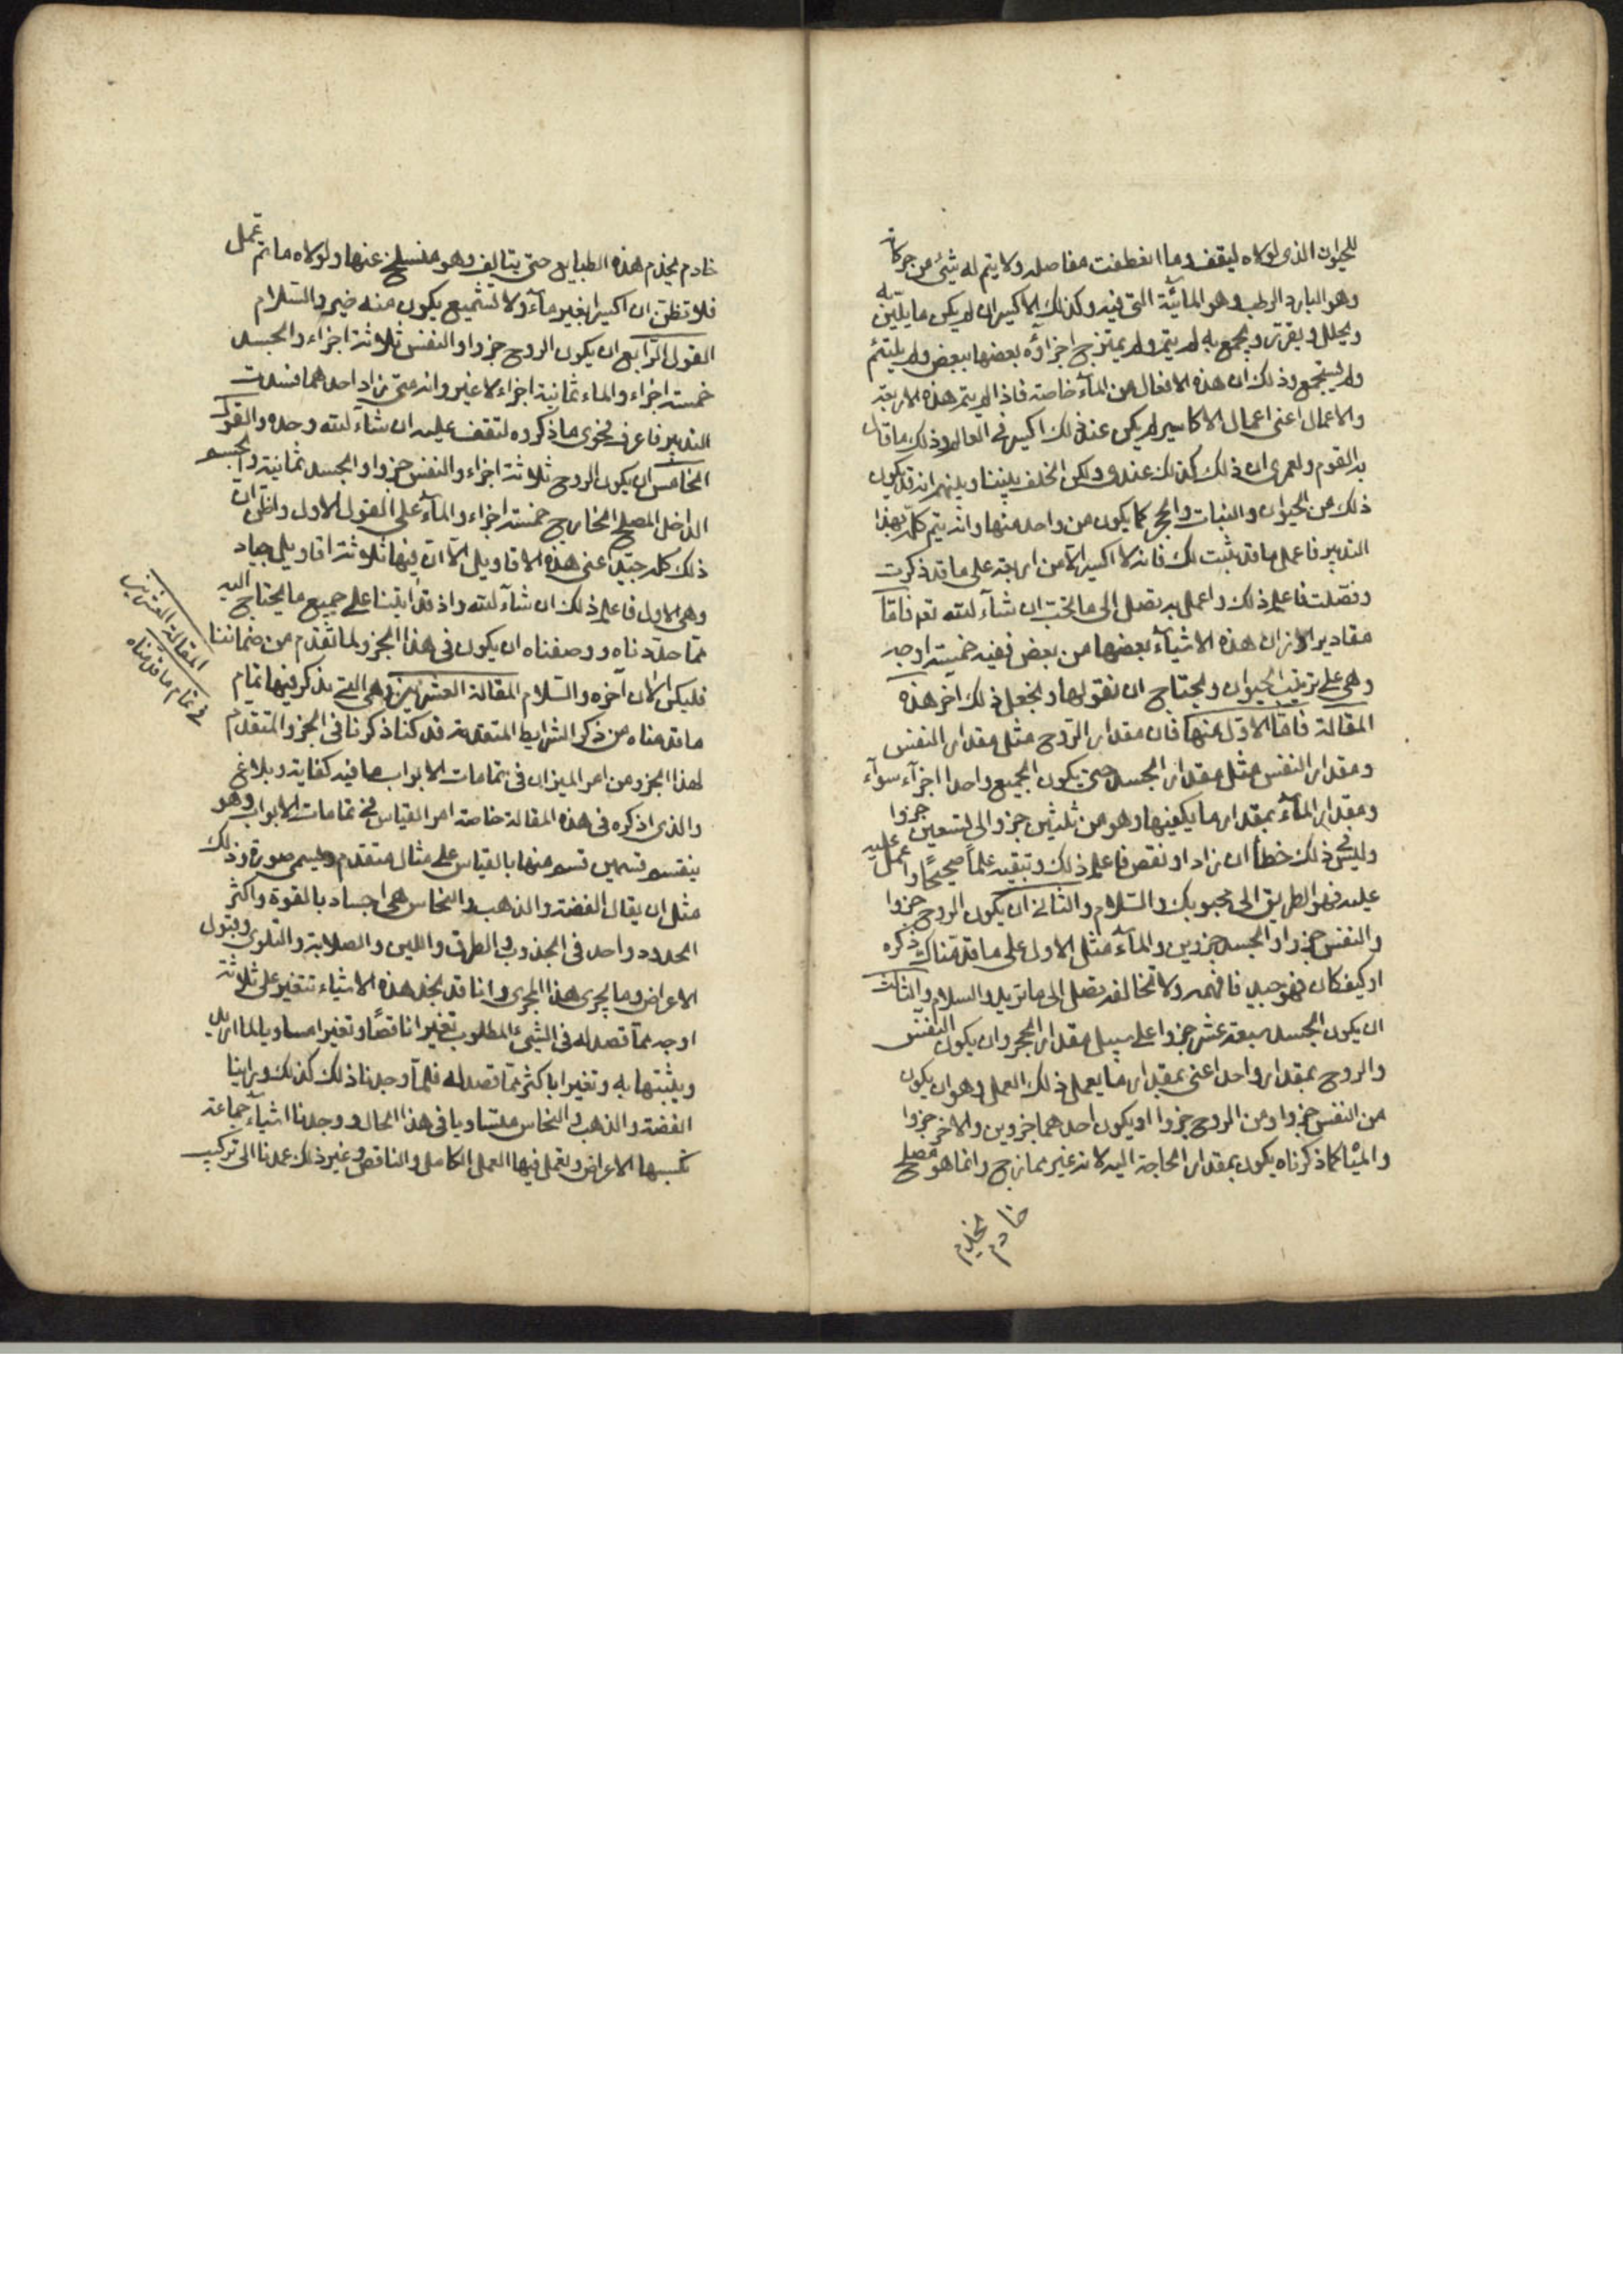 للحيوان الذى لولاه ليقف وما انعطفت مفاصله ولا يتم له شئ من حركاته
وهو البارد الرطب وهو المائية التى فيه وكذلك الاكسير ان لم يكن ما يلين به
ويحلل ويقرر ويجمع به لم يتم ولم يمتزج اجزاؤه بعضها ببعض ولم يلتئم
ولم يستجمع وذلك ان هذه الافعال من المآء خاصة فاذا لم يتم هذه الاربعة
والاعمال اعنى اعمال الاكاسير لم يكن عند ذلك اكسير فى العالم وذلك ما قال
به القوم ولعمرى ان ذلك كذلك عندى ولكن الخلف بيننا وبينهم انه قد يكون
ذلك من الحيوان والنبات والحجر كما يكون من واحد منها وانه يتم كله بهذا
التدبير فاعمل ما قد بثبت لك فانه لا اكسير الا من اربعة على ما قد ذكرت
وفصلت فاعلم ذلك واعمل به تصل الى ما تحب ان شآء الله تعم فاما
مقادير الاوزان هذه الاشيآء بعضها من بعض ففيه خمسة اوجه
وهى على ترتيب الحيوان ونحتاج ان نقولها ونجعل ذلك آخر هذه
المقالة فاما الاول منها فان مقدار الروح مثل مقدار النفس
ومقدار النفس مثل مقدار الجسد حتى يكون الجميع واحدا اجزآء سوآء
ومقدار المآء بمقدار ما يكفيها وهو من ثلثين جزوا الى تسعين جزوا
وليس فى ذلك خطأ ان زاد او نقص فاعلم ذلك وتبقيه علما صحيحا واعمل عليه
عليه فهو الطريق الى محبوبك والسلام والثانى ان يكون الروح جزوا
والنفس جزوا والجسد جزوين والمآء مثل الاول على ما قدمناك ذكره
او كيف كان فهو جيد فافهمه ولا تخالفه تصل الى ما تريد والسلام والثالث
ان يكون الجسد سبعة عشر جزوا على سبيل مقدار الحجر وان يكون النفس
والروح بمقدار واحد اعنى بمقدار ما يعمل ذلك العمل وهو ان يكون
من النفس جزوا ومن الروح جزوا او يكون احدهما جزوين والاخر جزوا
والماء كما ذكرناه يكون بمقدار الحاجة اليه لانه غير ممازج وانما هو مصلح
خادم يخدم
خادم يخدم هذه الطبايع حتى يتالف وهو منسلخ عنها ولولاه ما تم عمل
فلا تظن ان اكسيرا بغير مآء ولا تشميع يكون منه خير والسلام
القول الرابع ان يكون الروح جزوا والنفس ثلاثة اجزاء والجسد
خمسة اجزاء والماء ثمانية اجزاء لا غير وانه متى زاد احدهما فسدت
التدبير فاعرف فحوى ما ذكروه لتقف عليه ان شآء الله وحده والقول
الخامس ان يكون الروح ثلاثة اجزاء والنفس جزوا والجسد ثمانية والجسم
الداخل المصلح الخارج خمسة اجزاء والمآء على القول الاول واظن ان
ذلك كله جيد اعنى هذه الاقاويل الا ان فيها ثلاثة اقاويل جياد
وهى الاول فاعلم ذلك ان شآء الله واذ قد اتينا على جميع ما يحتاج اليه
مما حددناه ووصفناه ان يكون فى هذا الجزو لما تقدم من ضماننا
فليكن الان آخره والسلام المقالة العشرين وهى التى يذكر فيها تمام
ما قدمناه من ذكر الشرايط المتقدمة قد كنا ذكرنا فى الجزو المتقدم
لهذا الجزو من امر الميزان فى تمامات الابواب ما فيه كفاية وبلاغ
والذى اذكره فى هذه المقالة خاصة امر القياس فى تمامات الابواب وهو
ينقسم قسمين قسم منها بالقياس على مثال متقدم ويسمى صورة وذلك
مثل ان يقال الفضة والذهب والنحاس هى اجساد بالقوة واكثر
الحدود واحد فى الجذوب والطرق واللين والصلابة والتلوى وقبول
الاعراض وما يجرى هذا المجرى وانا قد نجد هذه الاشياء تتغير على ثلاثة
اوجه مما قصد له فى الشئ المطلوب تغييرا ناقصا وتغيرا مساويا لما اريد
ويثبتها به وتغيرا باكثر مما قصد له فلمآ وجدنا ذلك كذلك وراينا
الفضة والذهب والنحاس متساويا فى هذا الحال ووجدنا اشيآء جماعة
تكسبها الاعراض وتعمل فيها العمل الكامل والناقص وغير ذلك عمدنا الى تركيب
المقالة العشرين
فى تمام ما قدمناه